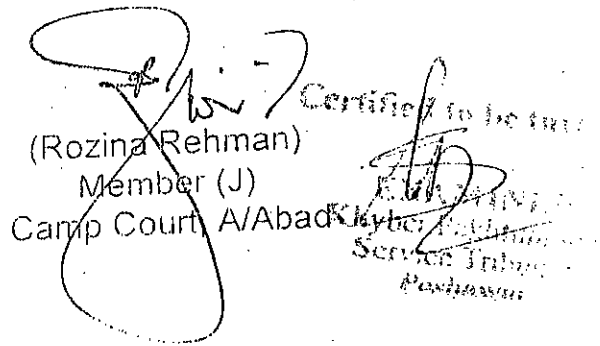 (Rozina Rehman)
Member (J)
Camp Court, A/Abad
Certified to be
Khyber
Service
Peshawar